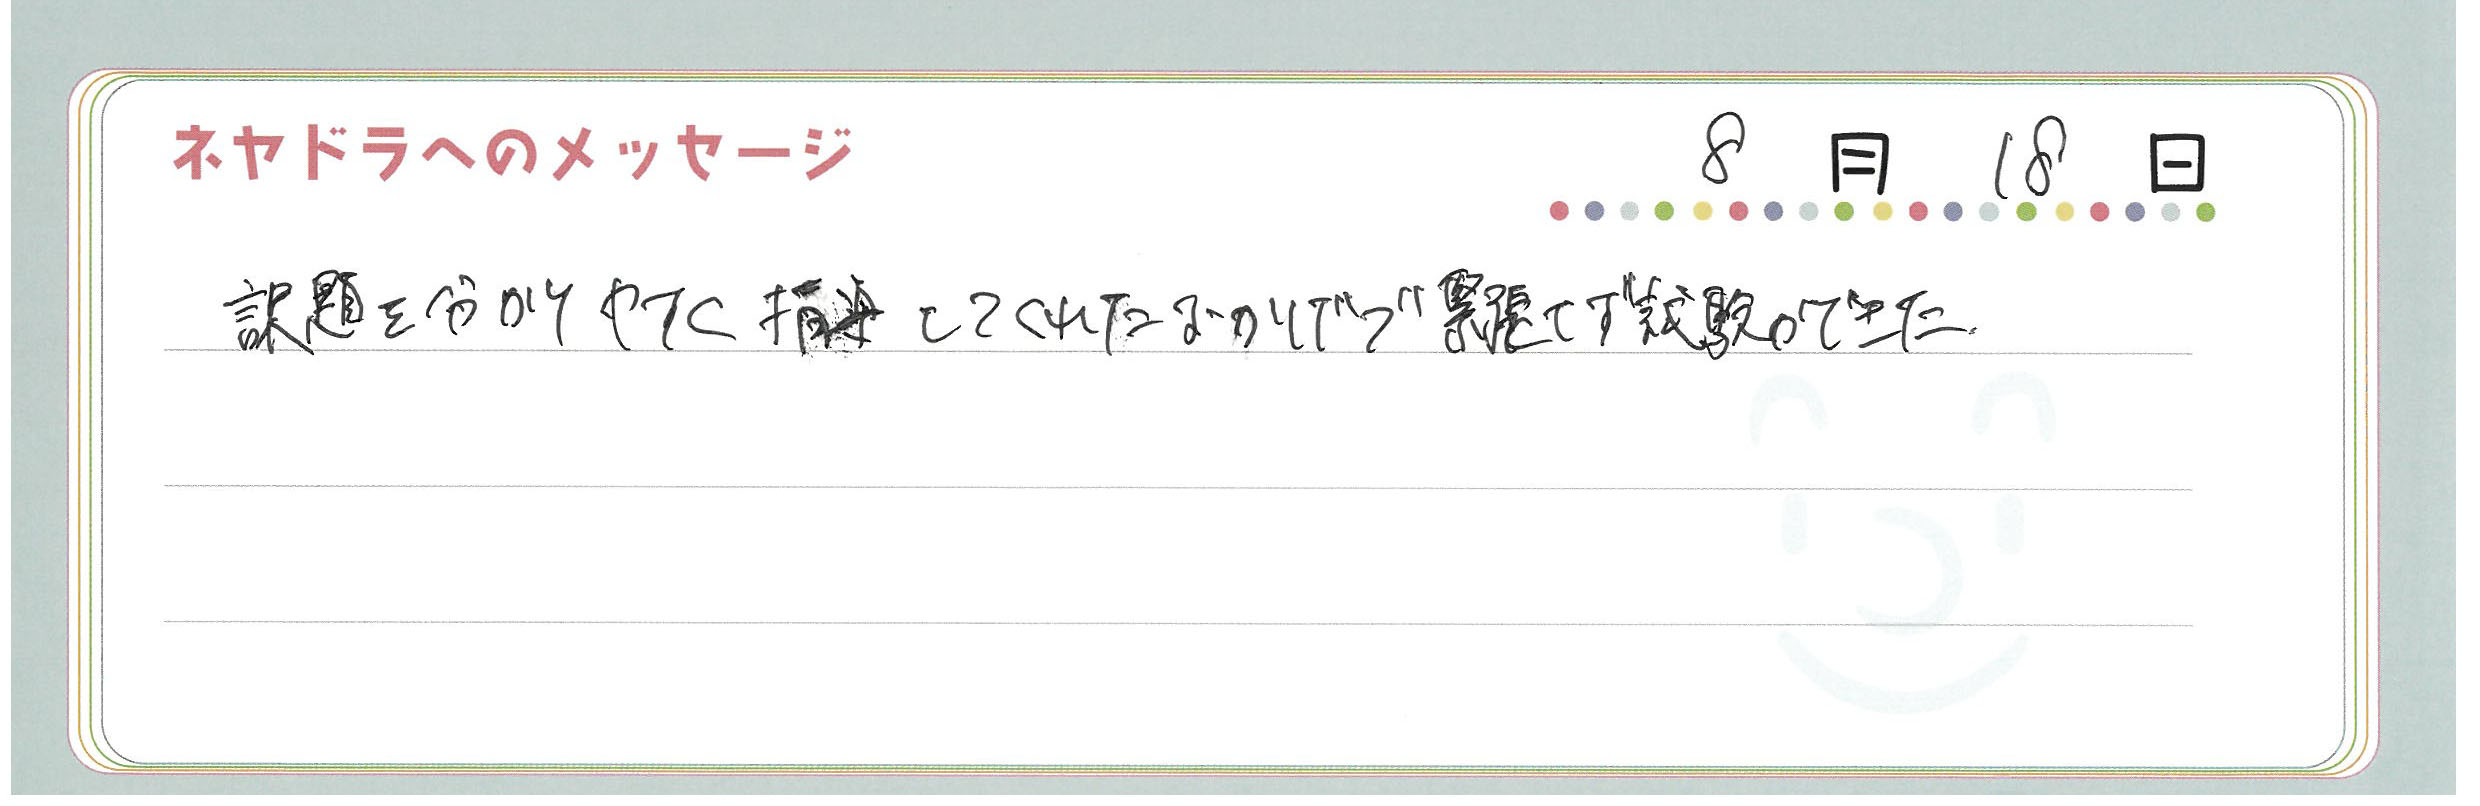 ネヤドラへのメッセージ
8月18日
課題を分かりやすく指導してくれたおかげで緊張せず試験ができた。